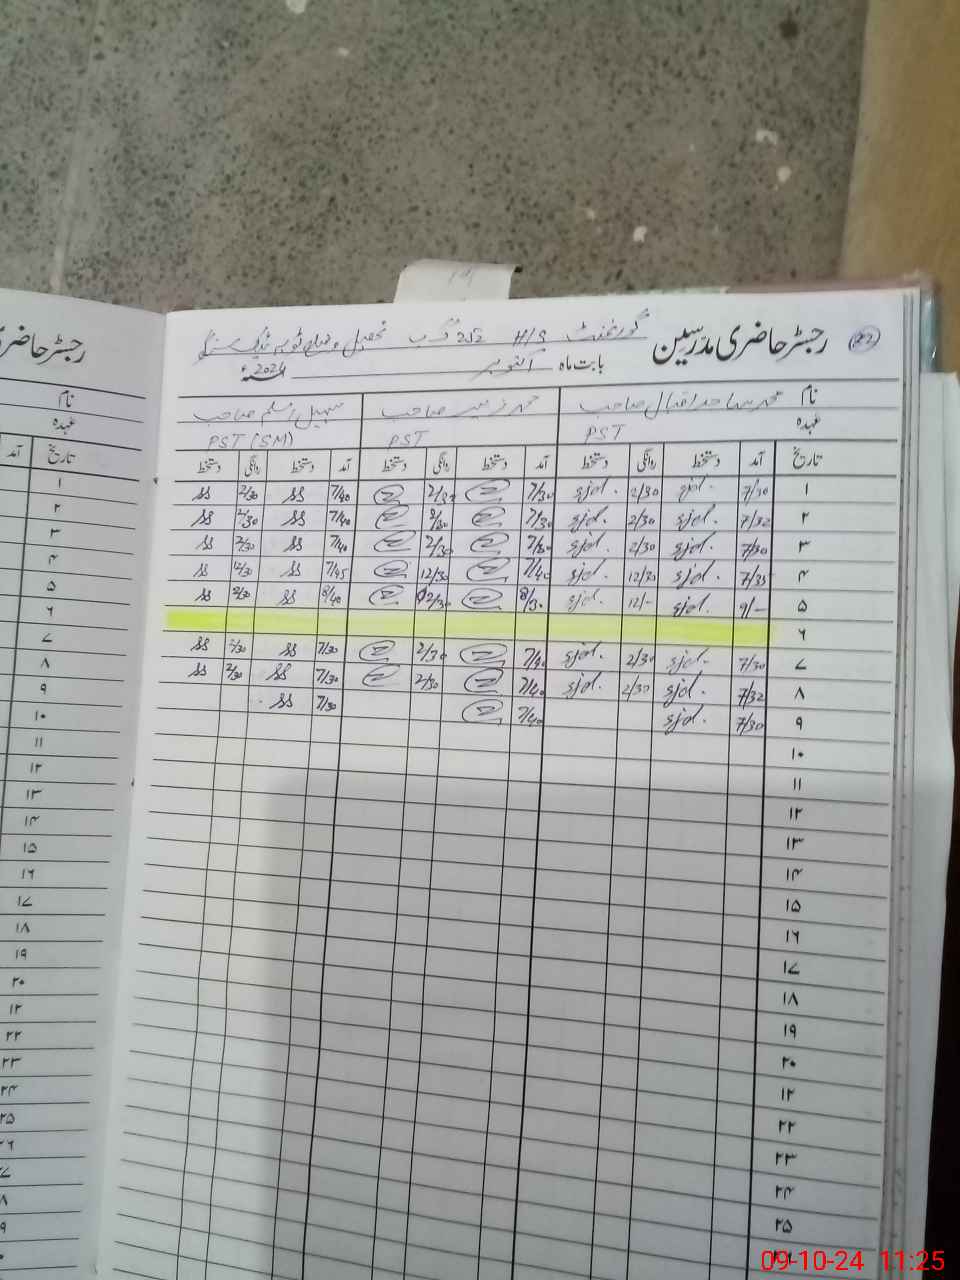 رجسٹر حاضری مدرسین 22
گورنمنٹ H/S 252 گ ب تحصیل و ضلع ٹوبہ ٹیک سنگھ
بابت ماہ اکتوبر 2024ء
نام محمد ساجد اقبال صاحب محمد صاحب سہیل اسلم صاحب
عہدہ PST PST PST (SM)
تاریخ آمد دستخط روانگی دستخط آمد دستخط روانگی دستخط آمد دستخط روانگی دستخط
۱ 7/30 sjd. 2/30 sjd. 7/30 2/30 7/40 SS 2/30 SS
۲ 7/32 sjd. 2/30 sjd. 7/30 7/40 SS 2/30 SS
۳ 7/30 sjd. 2/30 sjd. 7/30 2/30 7/40 SS 2/30 SS
۴ 7/35 sjd. 12/30 sjd. 7/40 12/30 7/45 SS 12/30 SS
۵ 9/- sjd. 12/- sjd. 8/30 2/30 8/40 SS 2/30 SS
۶
۷ 7/30 sjd. 2/30 sjd. 7/40 2/30 7/30 SS 2/30 SS
۸ 7/32 sjd. 2/30 sjd. 7/40 2/30 7/30 SS 2/30 SS
۹ 7/30 sjd. 7/40 7/30 SS
۱۰
۱۱
۱۲
۱۳
۱۴
۱۵
۱۶
۱۷
۱۸
۱۹
۲۰
۲۱
۲۲
۲۳
۲۴
۲۵
رجسٹر حاضری
نام
عہدہ
تاریخ آمد
۱
۲
۳
۴
۵
۶
۷
۸
۹
۱۰
۱۱
۱۲
۱۳
۱۴
۱۵
۱۶
۱۷
۱۸
۱۹
۲۰
۲۱
۲۲
۲۳
۲۴
۲۵
۲۶
09-10-24 11:25